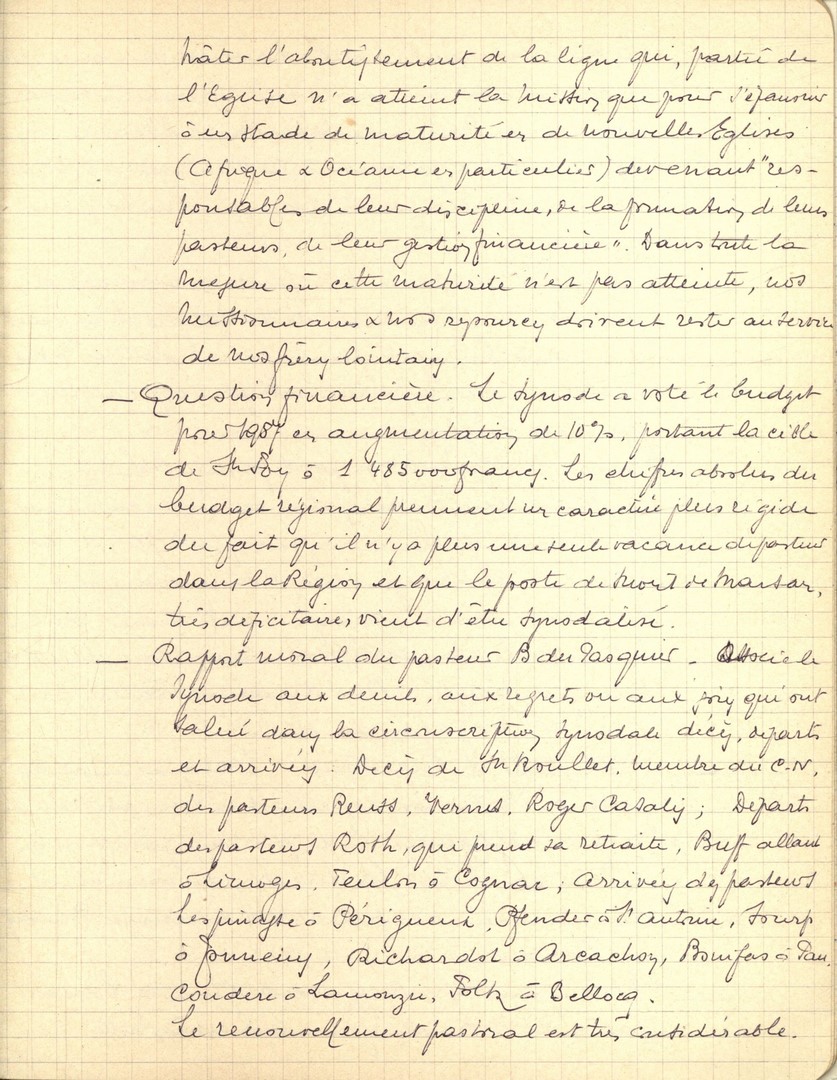 hâter l'aboutissement de la ligne qui, partie de
l'Eglise n'a atteint la Mission que pour s'épanouir
à un stade de maturité en de nouvelles Eglises
(Afrique & Océanie en particulier) devenant "res-
ponsables de leur discipline, de la formation de leurs
pasteurs, de leur gestion financière". Dans toute la
mesure où cette maturité n'est pas atteinte, nos
Missionnaires & nos ressources doivent rester au service
de nos frères lointains.
— Question financière. Le Synode a voté le budget
pour 1957 en augmentation de 10%, portant la cible
de à 1 485 000 francs. Les chiffres absolus du
budget régional prennent un caractère plus rigide
du fait qu'il n'y a plus une seule vacance de pasteur
dans la Région et que le poste de Mont de Marsan,
très déficitaire, vient d'être synodalisé.
— Rapport moral du pasteur B du Pasquier. Associe le
Synode aux deuils, aux regrets ou aux joies qu'ont
salué dans la circonscription synodale décès, départs
et arrivées. Décès de Mr Roullet, membre du C.N,
des pasteurs Reuss, Vernes, Roger Casalis; Départs
des pasteurs Roth, qui prend sa retraite, Buff allant
à Limoges, Teulon à Cognac; arrivées des pasteurs
Lespinasse à Périgueux, Pfender à St Antoine,
à Tonneins, Richardot à Arcachon, Bonifas à Pau,
Couderc à Lamonzie, Foltz à Bellocq.
Le renouvellement pastoral est très considérable.